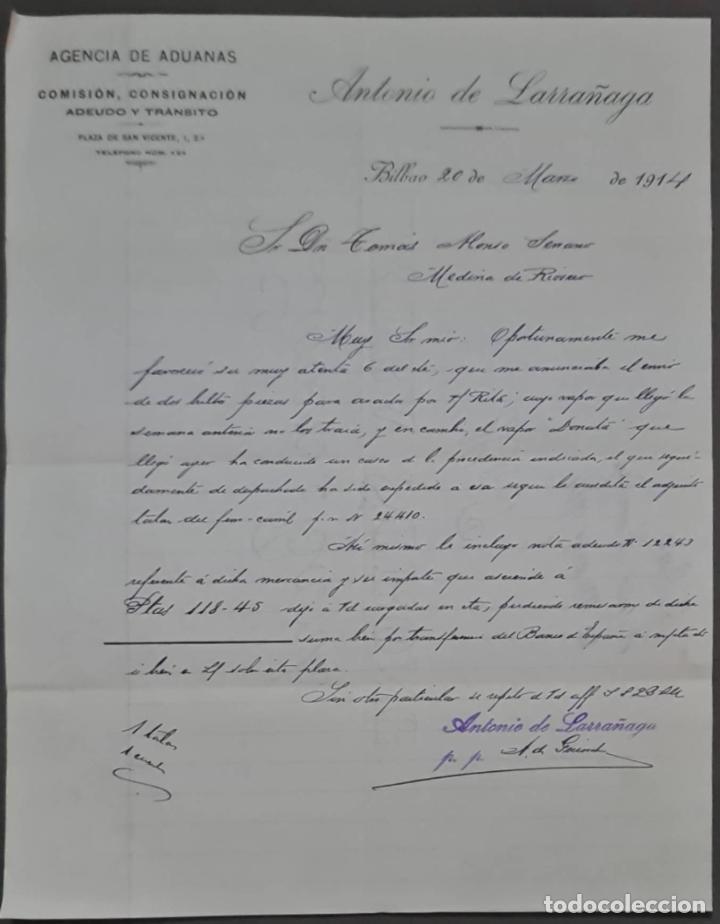 AGENCIA DE ADUANAS
COMISIÓN, CONSIGNACIÓN
ADEUDO Y TRÁNSITO
PLAZA DE SAN VICENTE, 1, 2º
TELÉFONO NÚM.
Antonio de Larrañaga
Bilbao 20 de Marzo de 1914
Sr Dn Tomás Alonso
Medina de Rioseco
Muy Sr mio: Oportunamente me
favoreció su muy atenta 6 del cte, que me anunciaba el envio
de dos bultos piezas para arados por v/ Rita; cuyo vapor que llegó la
semana anterior no los traia, y en cambio, el vapor "Donata" que
llegó ayer ha conducido un casco de la procedencia indicada, el que segui-
damente de despachado ha sido expedido a esa segun lo acredita el adjunto
talon del ferro-carril p.v. Nº 24410.
Asi mismo le incluyo nota adeudo Nº 12243
referente á dicha mercancia y su importe que asciende á
Ptas 118-45 dejo á Vd cargadas en cta, pudiendo remesarme dicha
suma bien por transferencia del Banco d España
ó bien en L/ sobre esta plaza.
Sin otro particular se repite d Vd aff
Antonio de Larrañaga
p. p.
1 talon
todocoleccion